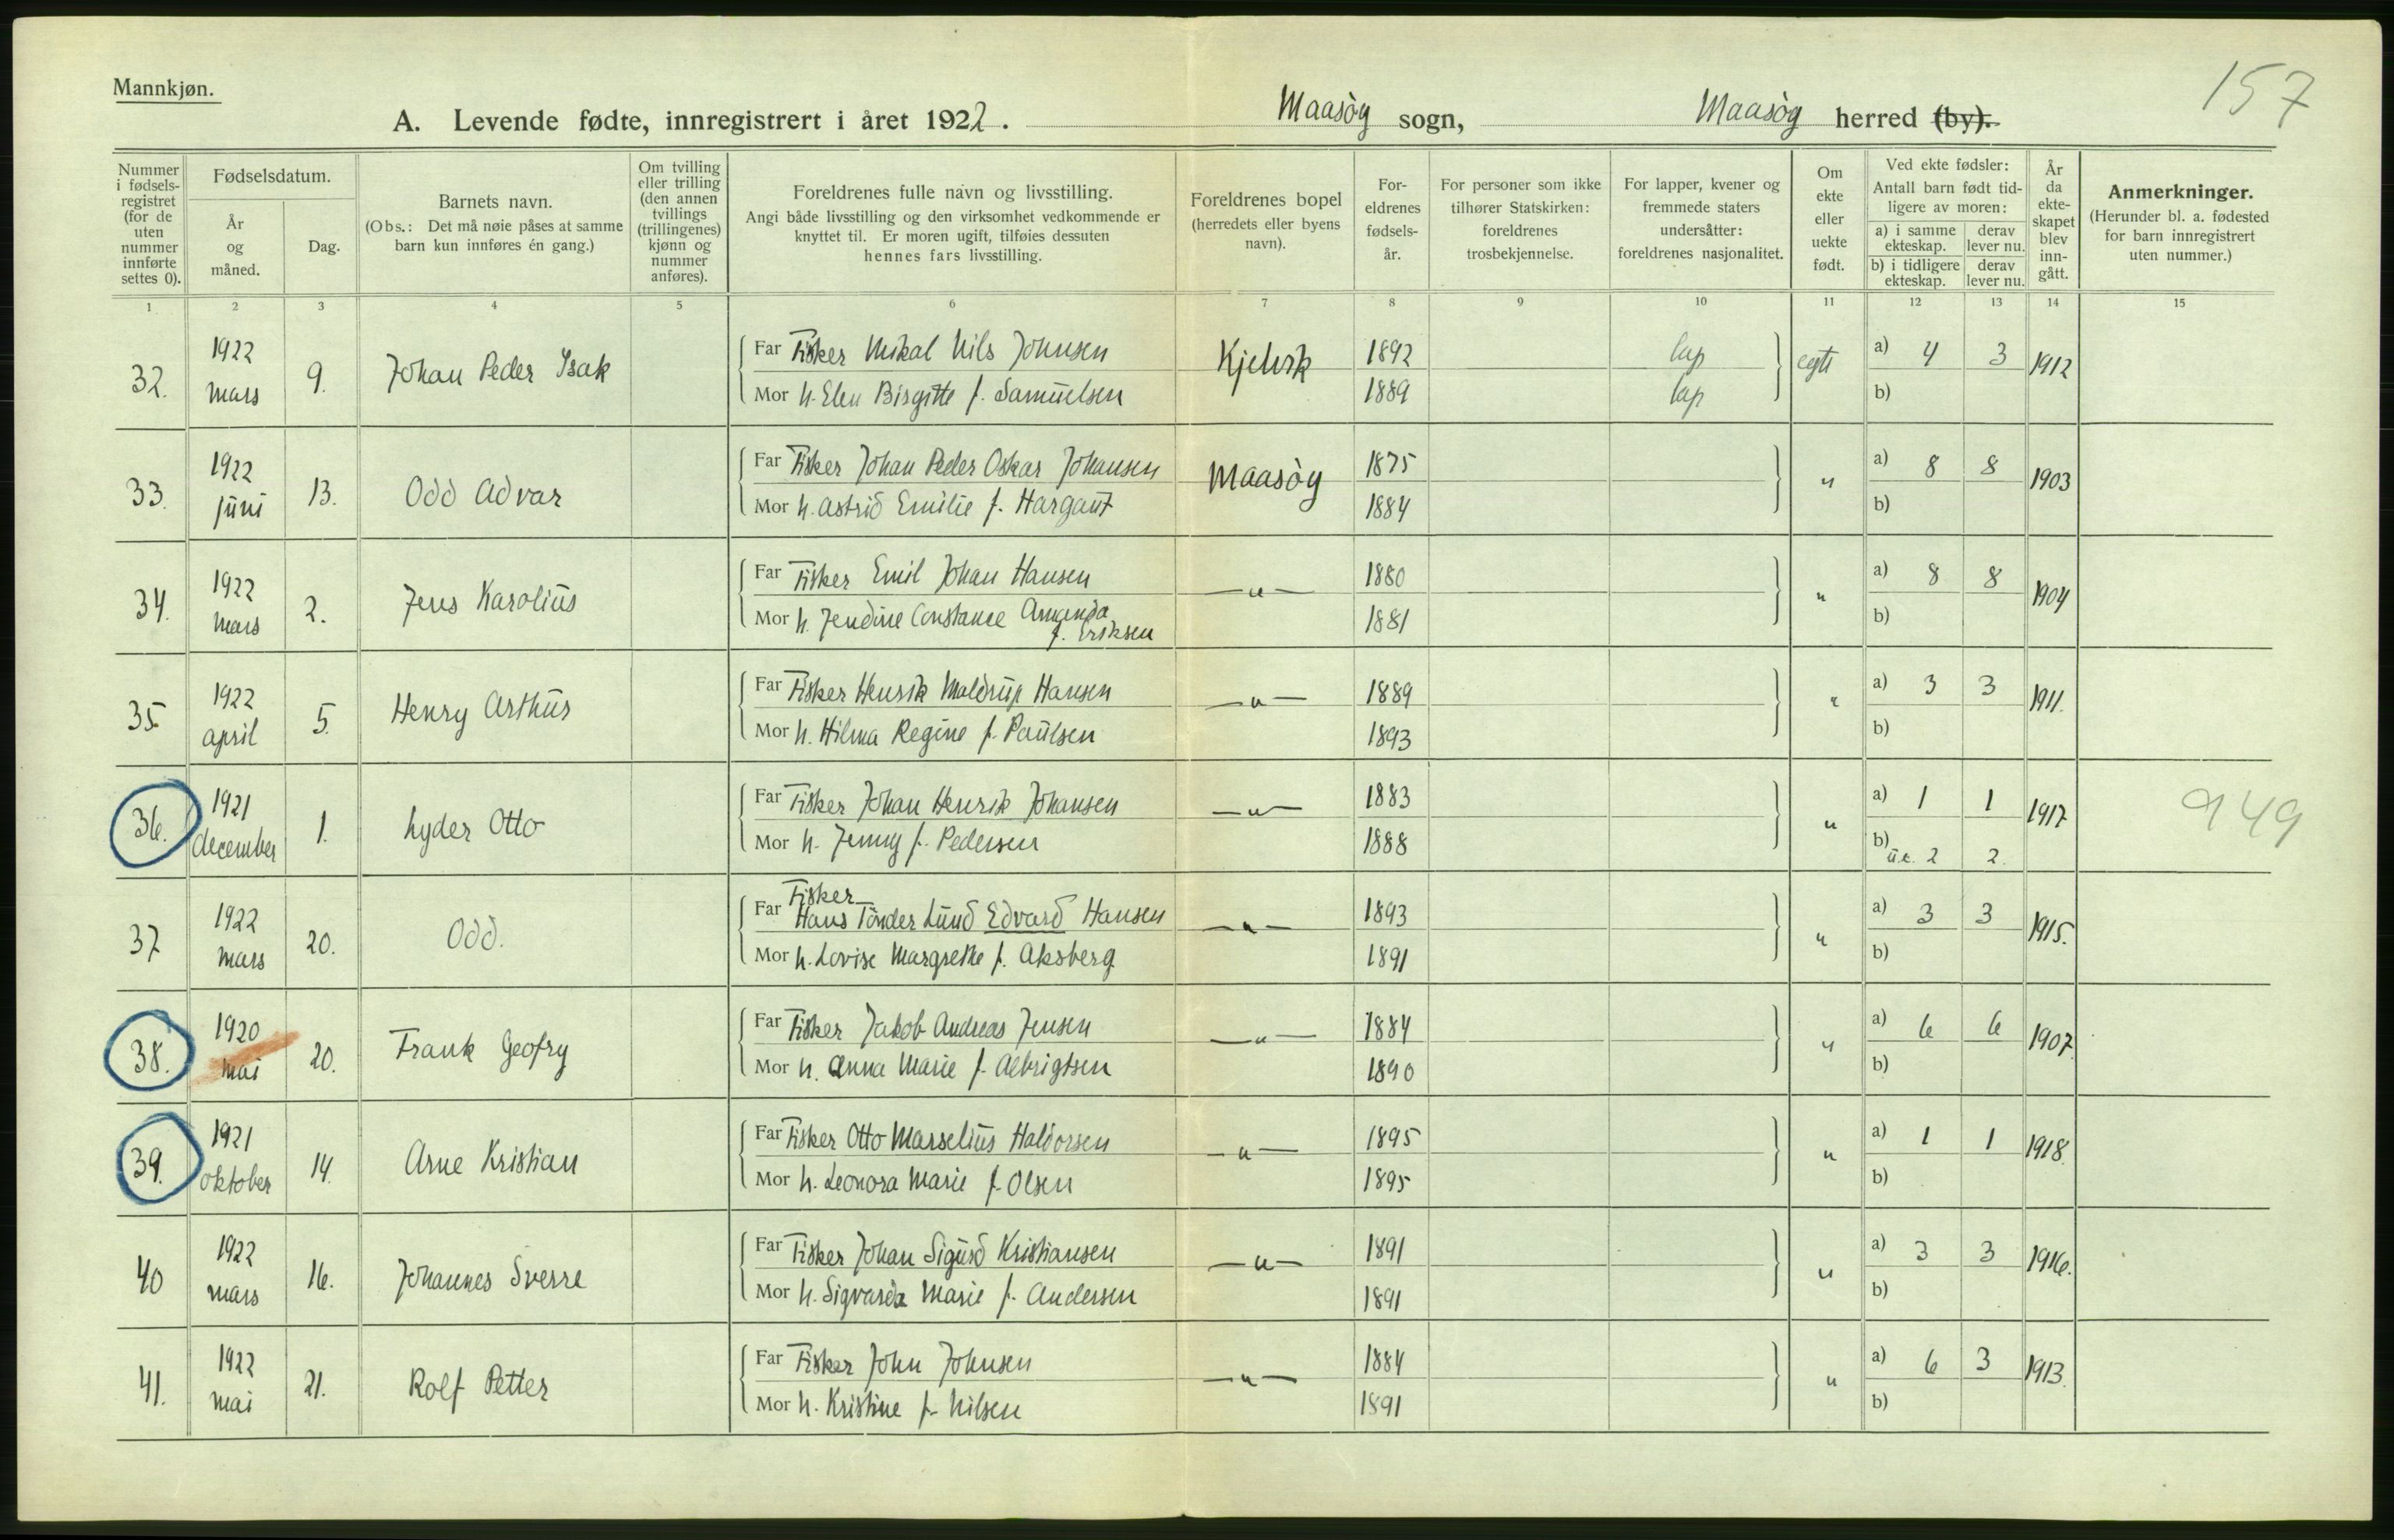 Mannkjøn.
157
A. Levende fødte, innregistrert i året 1922. Maasøy sogn, Maasøy herred (by).
Nummer i fødsels-registret (for de uten nummer innførte settes 0).
Fødselsdatum.
År og måned.
Dag.
Barnets navn.
(Obs.: Det må nøie påses at samme barn kun innføres én gang.)
Om tvilling eller trilling (den annen tvillings (trillingenes) kjønn og nummer anføres).
Foreldrenes fulle navn og livsstilling.
Angi både livsstilling og den virksomhet vedkommende er knyttet til. Er moren ugift, tilføies dessuten hennes fars livsstilling.
Foreldrenes bopel (herredets eller byens navn).
For-eldrenes fødsels-år.
For personer som ikke tilhører Statskirken: foreldrenes trosbekjennelse.
For lapper, kvener og fremmede staters undersåtter: foreldrenes nasjonalitet.
Om ekte eller uekte født.
Ved ekte fødsler:
Antall barn født tid-ligere av moren:
a) i samme ekteskap. derav lever nu.
b) i tidligere ekteskap. derav lever nu.
År da ekte-skapet blev inn-gått.
Anmerkninger.
(Herunder bl. a. fødested for barn innregistrert uten nummer.)
1 2 3 4 5 6 7 8 9 10 11 12 13 14 15
32. 1922 mars 9. Johan Peder Isak
Far Fisker Mikal Nils Johnsen Kjelvik 1892 lap egte a) 4 3 1912
Mor h. Elen Birgitte f. Samuelsen 1889 lap b)
33. 1922 juni 13. Odd Advar
Far Fisker Johan Peder Oskar Johansen Maasøy 1875 " a) 8 8 1903
Mor h. Astrid Emilie f. Hargaut 1884 b)
34. 1922 mars 2. Jens Karolius
Far Fisker Emil Johan Hansen —"— 1880 " a) 8 8 1904
Mor h. Jendine Constance Amanda f. Eriksen 1881 b)
35 1922 april 5. Henry Arthur
Far Fisker Henrik Maldrup Hansen —"— 1889 " a) 3 3 1911.
Mor h. Hilma Regine f. Paulsen 1893 b)
36. 1921 december 1. Lyder Otto
Far Fisker Johan Henrik Johansen —"— 1883 " a) 1 1 1917 949
Mor h. Jenny f. Pedersen 1888 b) u.e. 2 2.
37 1922 mars 20. Odd.
Far Fisker Hans Tønder Lund Edvard Hansen —"— 1893 " a) 3 3 1915.
Mor h. Lovise Margrethe f. Aksberg 1891 b)
38. 1920 mai 20. Frank Geofry
Far Fisker Jakob Andreas Jensen —"— 1884 " a) 6 6 1907.
Mor h. Anna Marie f. Albrigtsen 1890 b)
39. 1921 oktober 14. Arne Kristian
Far Fisker Otto Marselius Haldorsen —"— 1895 " a) 1 1 1918.
Mor h. Leonora Marie f. Olsen 1895 b)
40 1922 mars 16. Johannes Sverre
Far Fisker Johan Sigurd Kristiansen —"— 1891 " a) 3 3 1916.
Mor h. Sigvarda Marie f. Andersen 1891 b)
41. 1922 mai 21. Rolf Petter
Far Fisker John Johnsen —"— 1884 " a) 6 3 1913.
Mor h. Kristine f. Nilsen 1891 b)